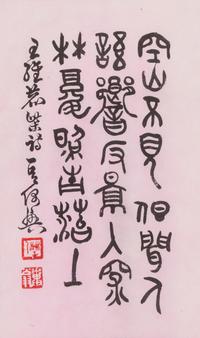 空山不見但聞人
語響反景入深
林复照青苔上
王維鹿柴詩